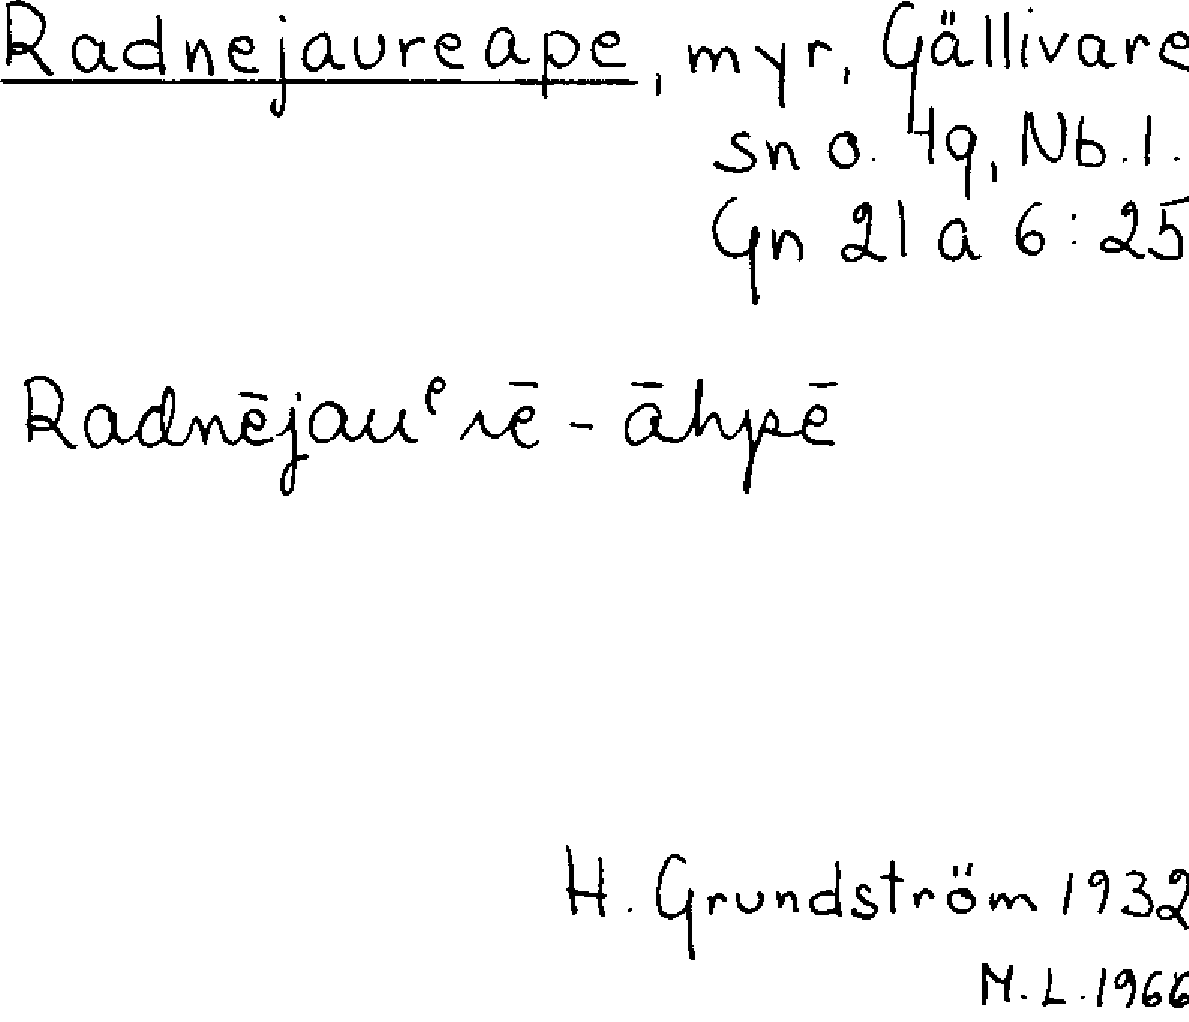 Radnejaureape, myr, Gällivare
sn o. 4q, Nb. l.
Gn 21 a 6:25
Radnējauᵉrē - āhpē
H. Grundström 1932
M. L. 1966